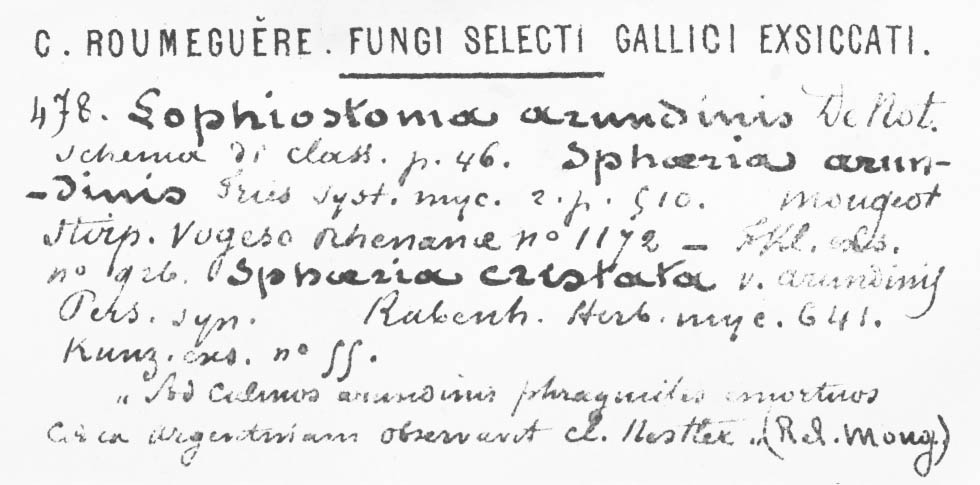 C. ROUMEGUÈRE. FUNGI SELECTI GALLICI EXSICCATI.
478. Lophiostoma arundinis De Not.
Schema di class. p. 46. Sphæria arun-
-dinis Fries Syst. myc. 2. p. 510. Mougeot
Stirp. Vogeso Rhenanæ nº 1172 – Fkl. exs.
nº 926. Sphæria cristata v. arundinis
Pers. syn. Rabenh. Herb. myc. 641.
Kunz. exs. nº 55.
„ Ad Culmos arundinis phragmites emortuos
Circa Argentinam observavit cl. Nestler „ (Rel. Moug.)